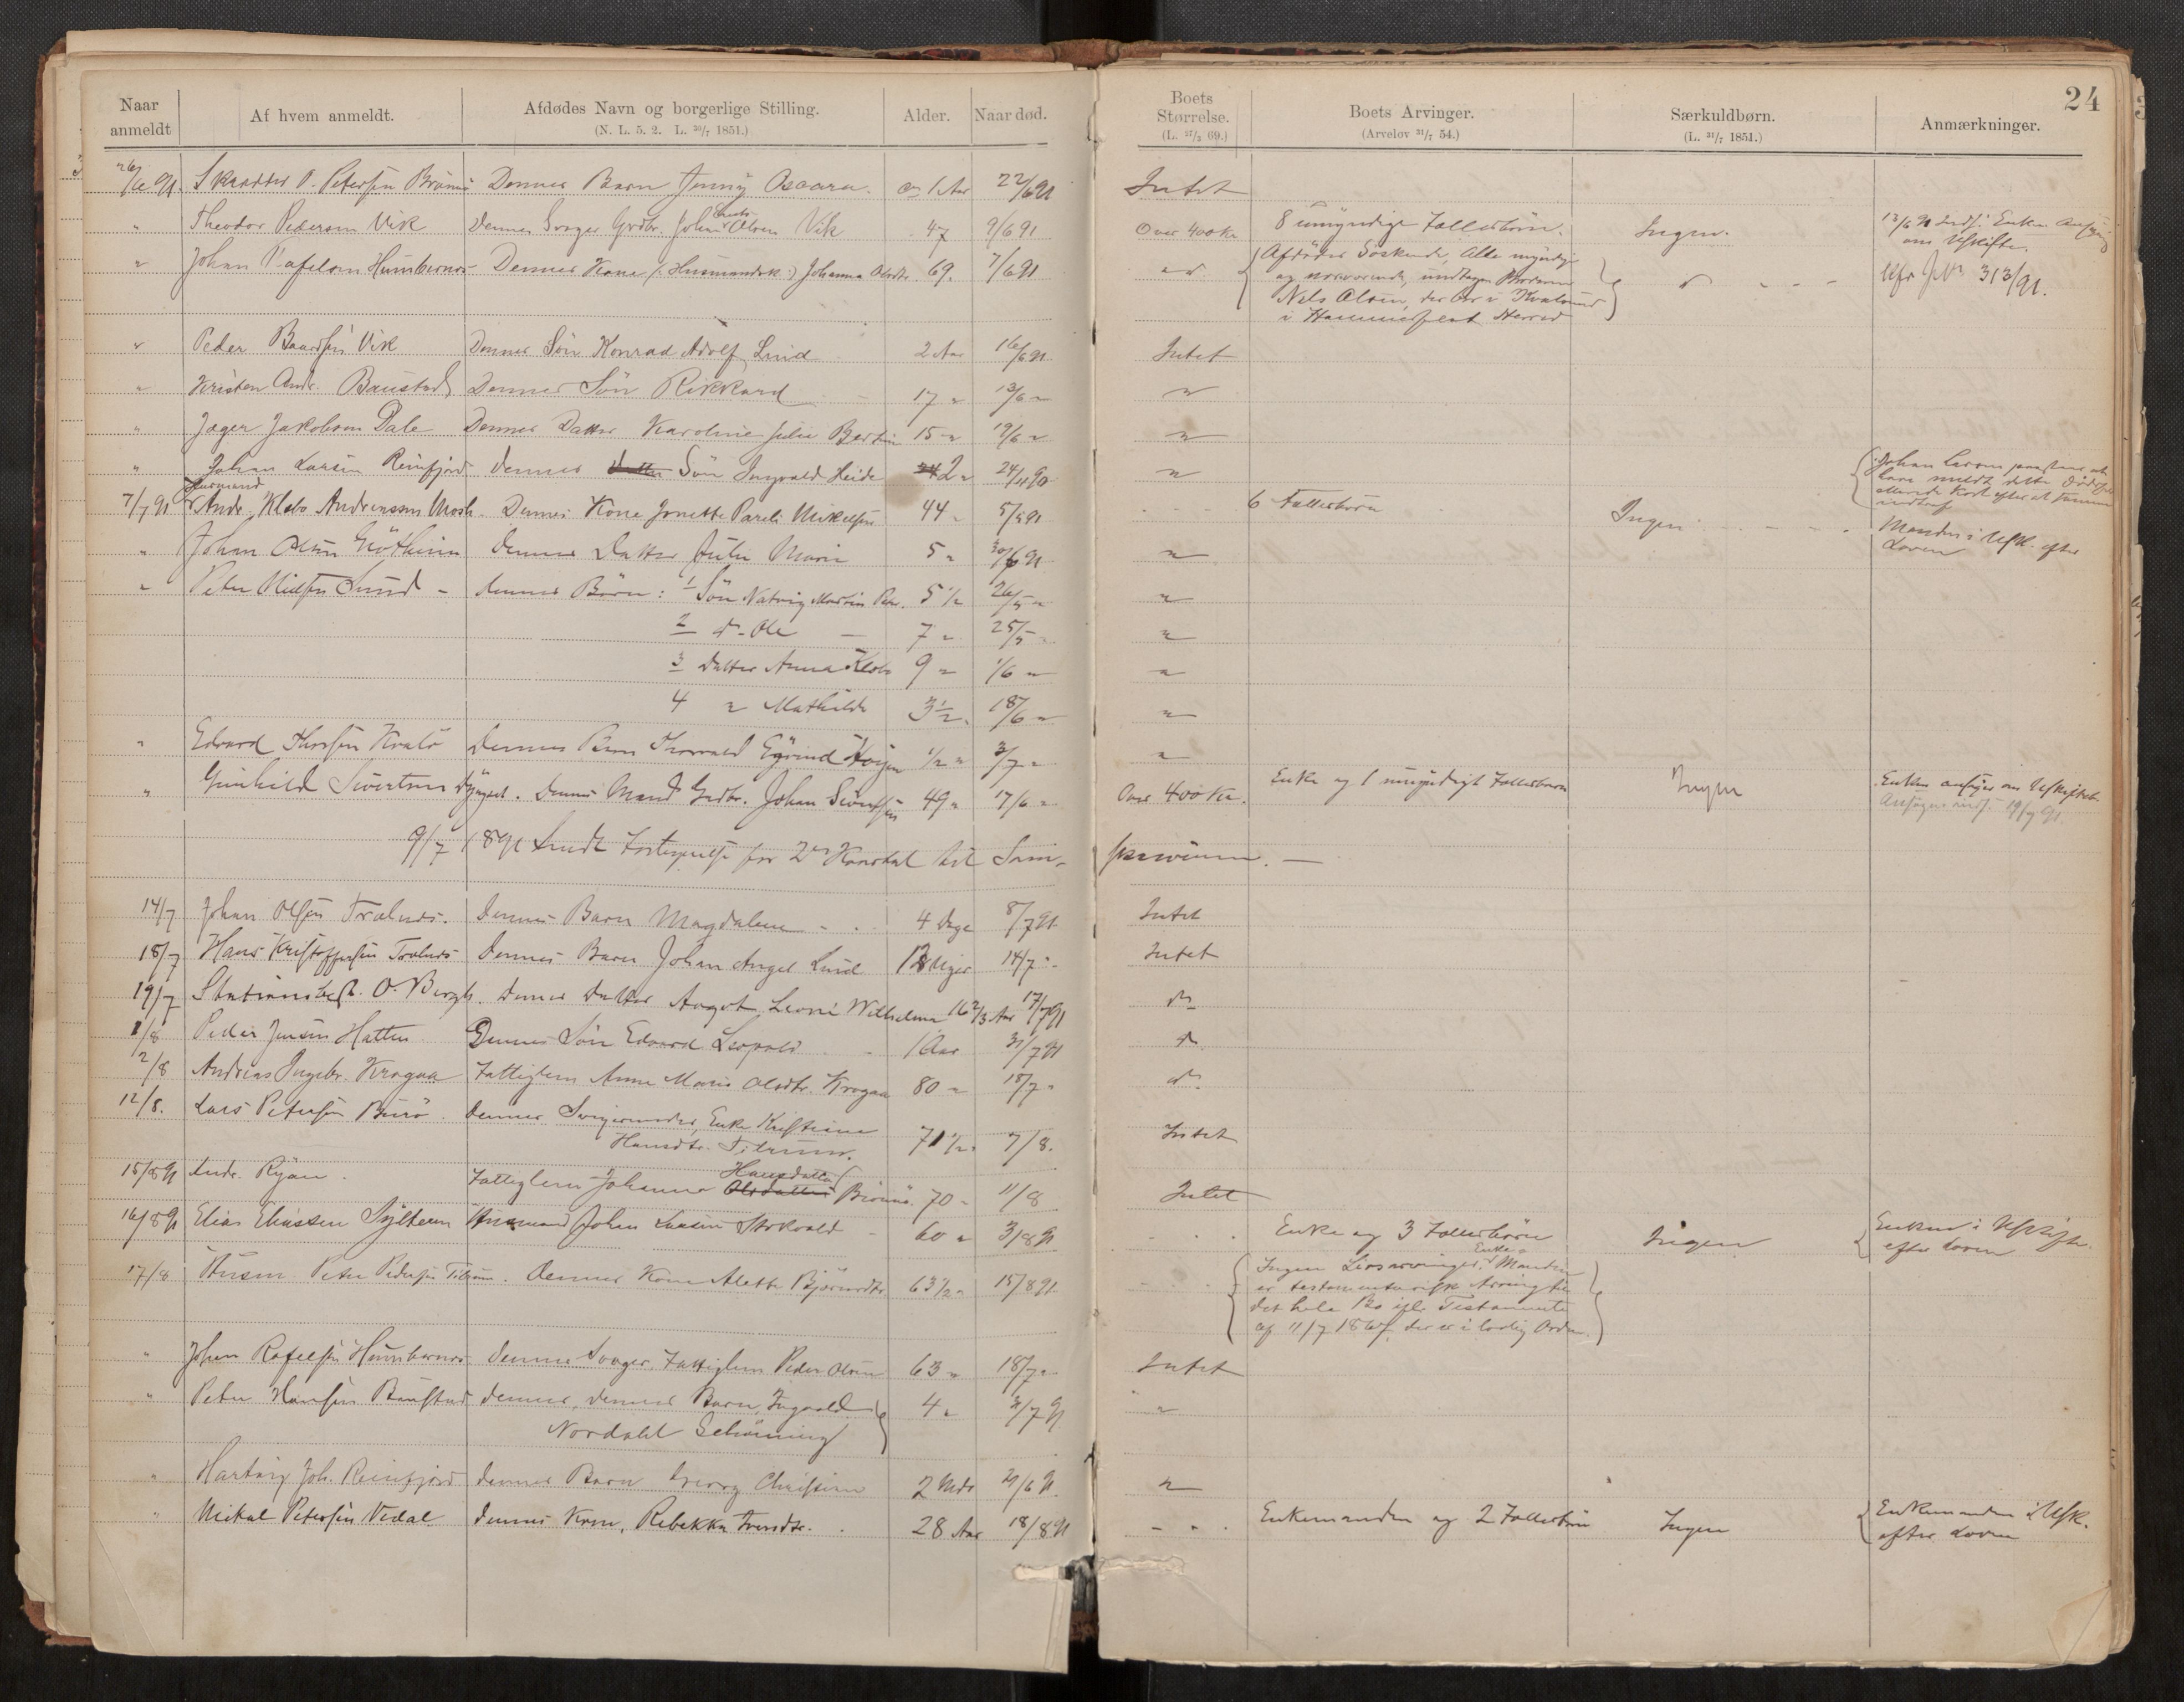 24
Naar anmeldt | Af hvem anmeldt. | Afdødes Navn og borgerlige Stilling. (N. L. 5. 2. L. 30/7 1851.) | Alder. | Naar død. | Boets Størrelse. (L. 27/3 69.) | Boets Arvinger. (Arvelov 31/7 54.) | Særkuldbørn. (L. 31/7 1851.) | Anmærkninger.
26/6 91. | Skrædder P. Petersen | Dennes Barn Jenny Oscara. | 1 Aar | 22/6 91 | Intet
" | Theodor Pedersen Vik | Dennes Svoger Grdbr. Johan Olsen Vik | 47 | 9/6 91 | Over 400 Kr | 8 umyndige Fællesbörn. | Ingen. | 13/6 91 Enkes
om Uskifte.
" | Johan Rafelsen Humbernes | Dennes Kone (: Husmandsk. :) Johanna Olsdtr. | 69. | 7/6 91 | | Afdødes Søskende, Alle myndige | | Jvr 313/91.
og nærværende, undtagen Broderen
Nels Olsen, der bor i Kvalsund
i Hammerfest Herred
" | Peder Baardsen Vik | Dennes Sön Konrad Adolf Lind | 2 Aar | 16/6 91 | Intet
" | Kristen Andr. Baustad | Dennes Sön Rikkard | 17 " | 13/6 " | "
" | Jæger Jakobsen Dale | Dennes Datter Karoline Julie Bertine | 15 " | 19/6 " | "
" | Johan Larsen Reinfjord | dennes Datter Sön Ingvald Heide | 2 " | 24/11 90 | " | | | Johan Larsen paastaar at
have meldt dette Dödsfald
allerede kort efter at samme
indtraf
7/7 91 | Husmand Andr. Klebo Andreassen | Dennes Kone Jonette Pareli Mikelsen | 44 " | 5/5 91 | | 6 Fællesbörn | Ingen | Manden i Usk. efter
Loven
" | Johan Olsen | dennes Datter Julie Marie | 5 " | 30/6 91 | "
" | Peter Nielsen Sund | dennes Börn: 1 Sön Natvig Martin | 5 1/2 | 26/5 " | "
2 do Ole | 7 " | 25/5 " | "
3 Datter Anna Klebo | 9 " | 1/6 " | "
4 " Mathilde | 3 1/2 " | 18/6 " | "
" | Edvard Thorsen Kvalö | Dennes Barn Thorvald Eyvind | 1/2 " | 3/7 " | "
" | Gunhild Sivertsen | Dennes Mand Grdbr. Johan Sivertsen | 49 " | 17/6 " | Over 400 Kr. | Enke og 1 umyndigt Fællesbarn | Ingen | Enken ansöger om Uskiftet.
19/7 91
9/7 1891 Sendt Fortegnelse for 2det Kvartal til Sorenskriveren. —
14/7 | Johan Olsen Trælnes. | Dennes Barn Magdalene | 4 Dage | 8/7 91 | Intet
18/7 | Hans Kristoffersen Trælnes | Dennes Barn Johan Angel Lind | Uger | 14/7 " | Intet
19/7 | Stationsbest. O. Bergh. | Dennes Datter Aagot Leoni Wilhelmine | 16 2/3 Aar | 17/7 91 | do
1/8 | Peder Jensen Hatten | Dennes Sön Edvard Leopold | 1 Aar | 31/7 91 | do
2/8 | Andreas Ingebr. Krogaa | Fattiglem Anne Marie Olsdtr. Krogaa | 80 " | 18/7 " | do
12/8. | Lars Petersen | dennes Svigermoder, Enke Kristiane
Hansdtr. Tilrem. | 71 1/2 " | 7/8. | Intet
15/8 91 | Andr. Ryan. | Fattiglem Johanna Olsdatter Hansdatter | 70 " | 11/8 | Intet
16/8 91 | Elias Eliassen Sylteren | Husmand Johan Larsen | 60 " | 3/8 91 | | Enke og 3 Fællesbörn | Ingen | Enken i Uskifte
efter Loven
17/8 | Husm. Peter Pedersen Tilrem. | Dennes Kone Alette Björnsdtr | 63 1/2 " | 15/8 91 | | Ingen Livsarvinger. Enkemanden
er testamentarisk Arving til
det hele Bo ifl. Testamente
af 11/7 1867, der er i lovlig Orden.
" | Johan Rafelsen Humbernes | dennes Svoger, Fattiglem Peder Olsen | 63 " | 18/7 " | Intet
" | Peter Hansen Baustad | dennes, dennes Barn, Ingvald
Nordahl Schönning | 4 " | 3/7 91 | "
" | Hartvig Joh. Reinfjord | dennes Barn Georg Christian | 2 Mdr | 21/6 91. | "
" | Mikal Petersen Vedal | dennes Kone, Rebekka | 28 Aar | 18/8 91 | | Enkemanden og 2 Fællesbörn | Ingen | Enkemanden i Usk.
efter Loven